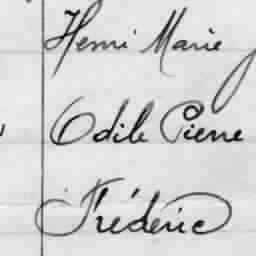 Henri Marie
Odile Pierre
Fréderic